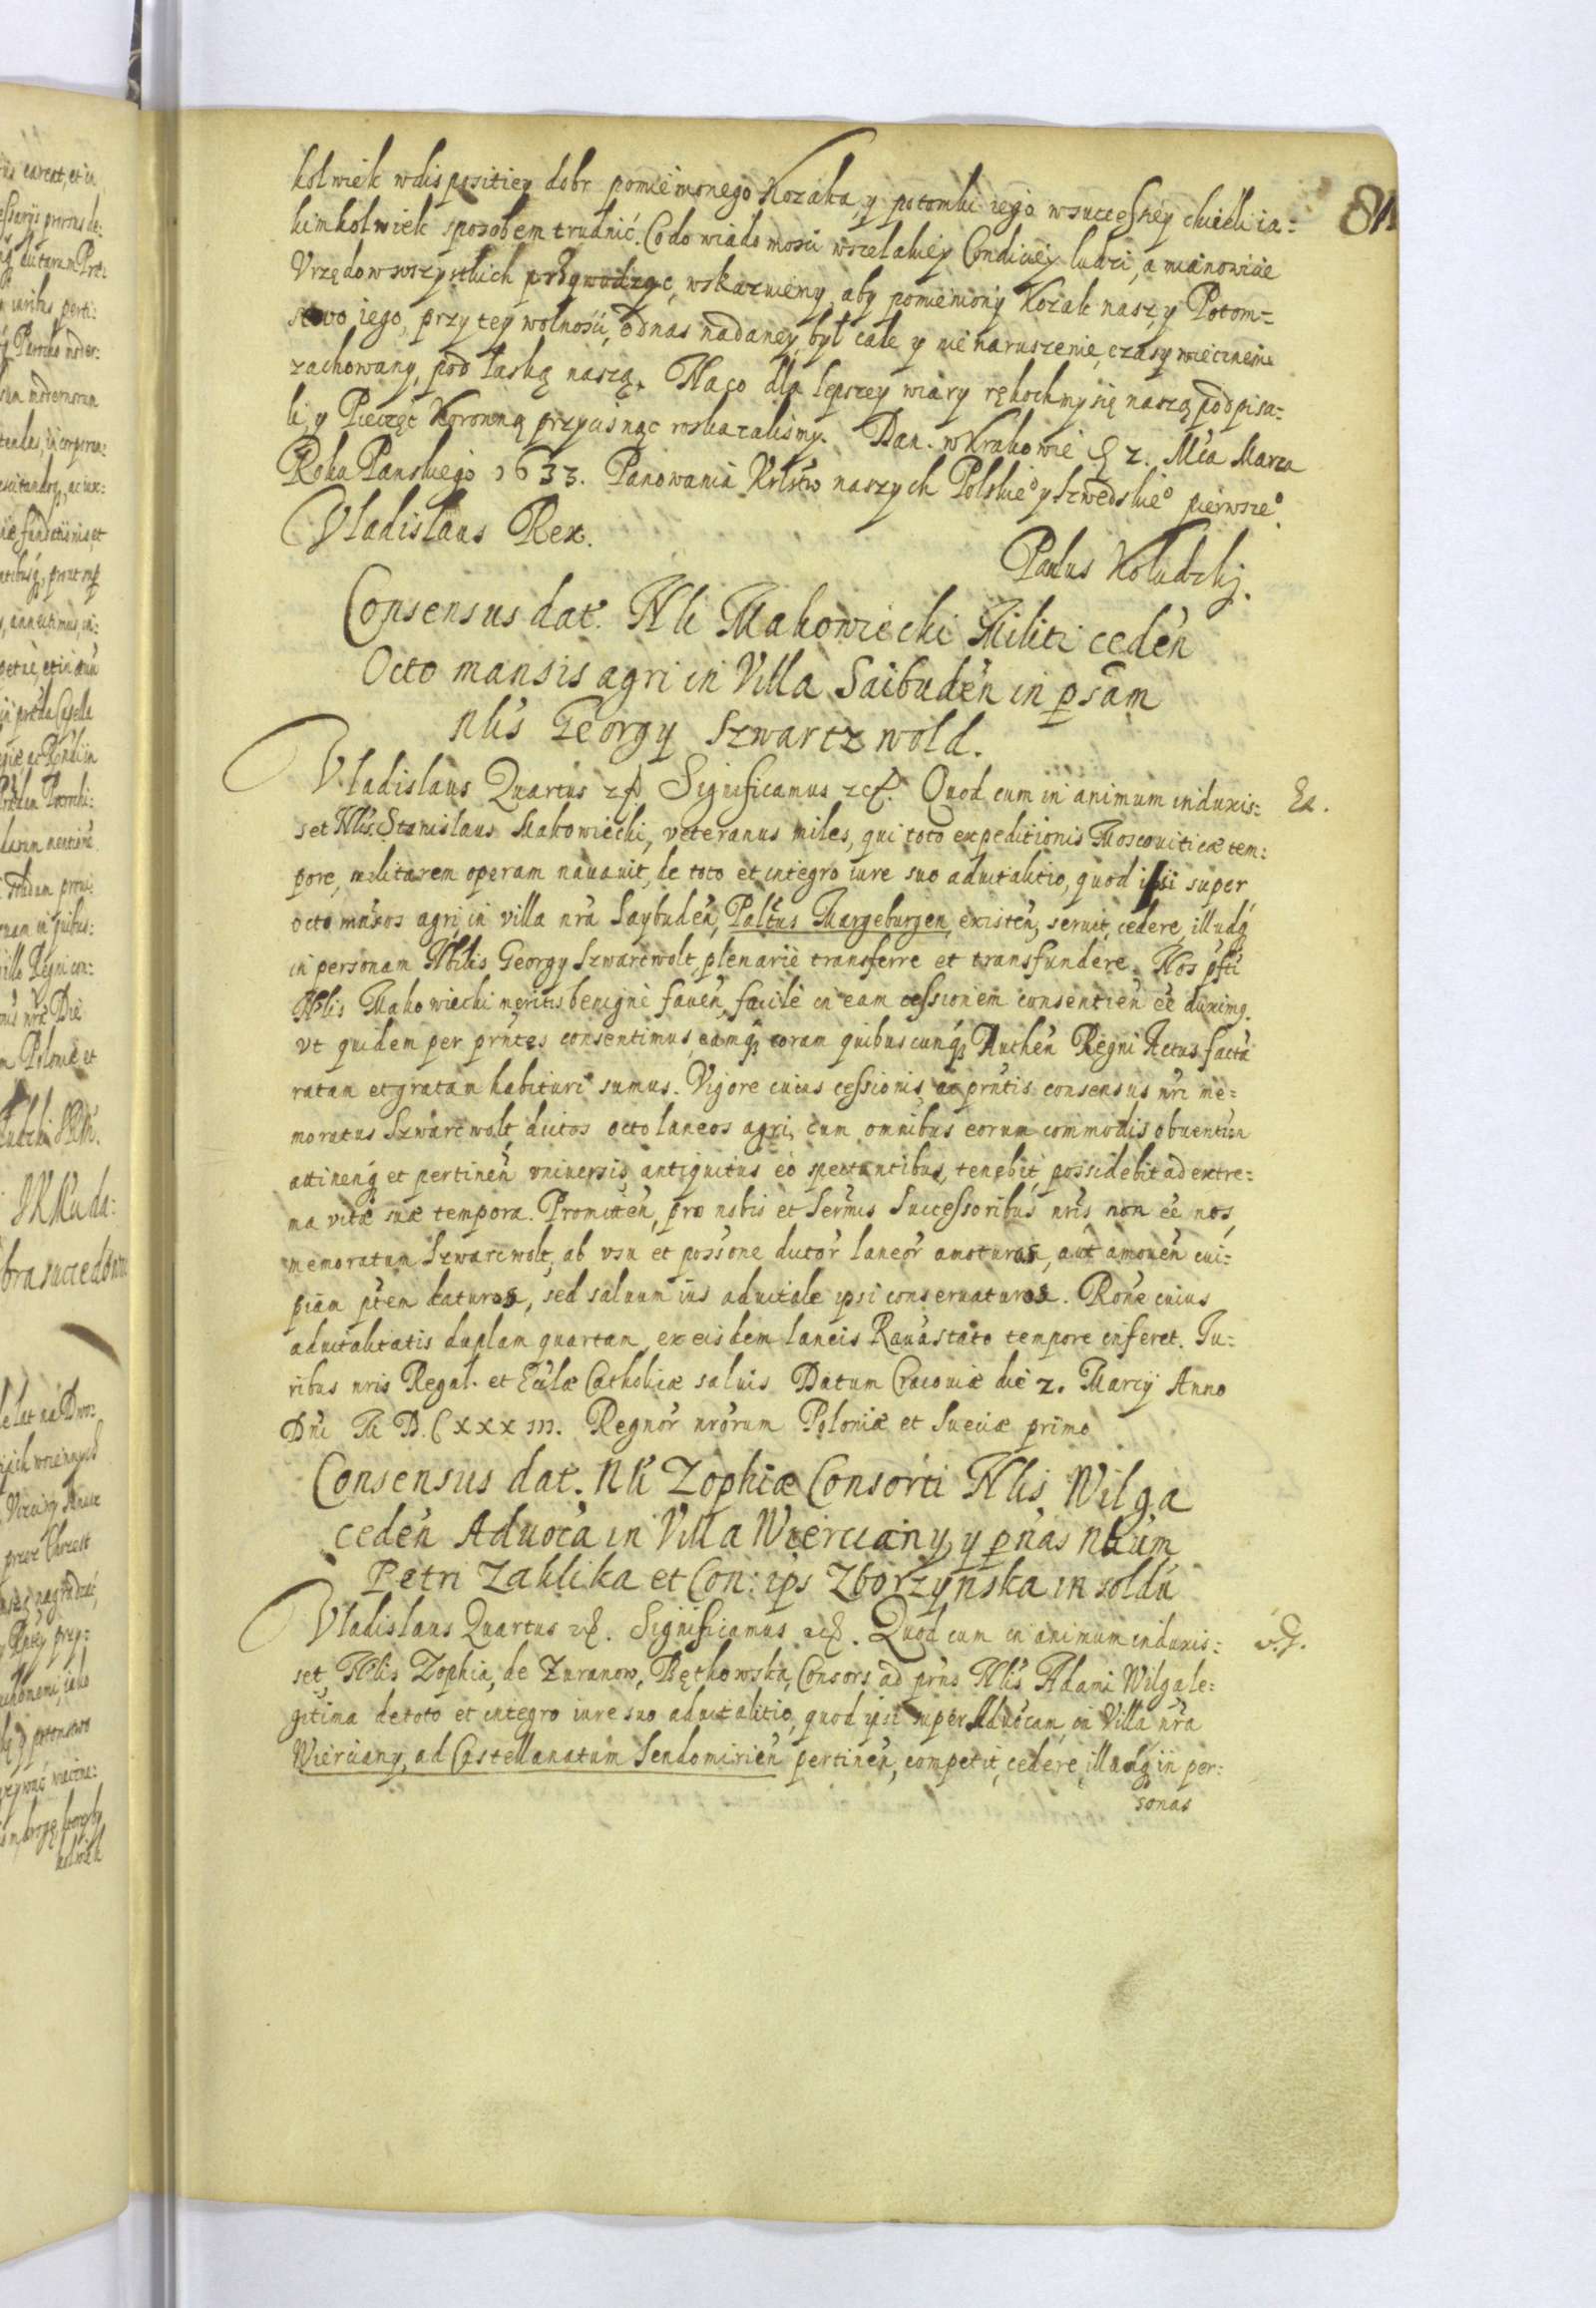 81
kolwiek wdispositiey dobr pomienionego Kozaka, y potomki iego wsuccessiey chcieli ia=
kimkolwiek sposobem trudnić. Co do wiadomosci wszelakiey Condiciey ludzi, a mianowicie
Vrzędow wszystkich przywodząc, wskazuiemy, aby pomieniony Kozak nasz, y Potom=
stwo iego, przy tey wolności, od nas nadaney, był cale y nienaruszenie, czasy wiecznemi
zachowany, pod łaską naszą. Na co dla lepszey wiary rękochmy się naszą podpisa=
li, y Pieczęć Koronną przycisnąc roskazalismy. Dan. w Krakowie 2. Mca Marca
Roku Panskiego 1633. Panowania Krlstw naszych Polskieo y Szwedskieo pierwszeo.
Vladislaus Rex.
Paulus Kołudzkj.
Consensus dat. Nli Makowiecki Militi ceden
Octo mansis agri in Villa Saibuden in psam
Nlis Georgy Szwartzwold.
Vladislaus Quartus etc. Significamus etc. Quod cum in animum induxis= Ex.
set Nlis Stanislaus Makowiecki, veteranus miles, qui toto expeditionis Moscouiticæ tem:
pore, militarem operam nauauit, de toto et integro iure suo aduitalitio, quod ipsi super
octo mansos agri in villa nra Saybuden, Paltus Margeburgen existen, seruit, cedere, illudq
in personam Nbilis Georgy Szwarcwolt, plenariè transferre et transfundere. Nos pfti
Nblis Makowiecki meritis benignè fauen, facilè in eam cessionem consentien eē duximq.
Vt quidem per prntes consentimus, eamq coram quibuscunq Authen Regni Actus facta
ratam et gratam habituri sumus. Vigore cuius cessionis ac prntis consensus nri me=
moratus Szwarcwolt, dictos octo laneos agri, cum omnibus eorum commodis obuention
attinenq et pertinen vniuersis, antiquitùs eò spectantibus, tenebit, possidebit ad extre=
ma vitæ suæ tempora. Promitten, pro nobis et Sermis Successoribus nris non eē nos
memoratum Szwarcwolt, ab vsu et possone dictor laneor amoturos, aut amouen cui=
piam ptem daturos, sed saluum ius aduitale ipsi conseruaturos. Rone cuius
aduitalitatis duplam quartam, ex eisdem laneis Rauā stato tempore inferet. Iu=
ribus nris Regal. et Eccłæ Catholicæ saluis. Datum Cracouiæ die 2. Marcÿ Anno
Dni M D. C XXX III. Regnor nrorum Poloniæ et Sueciæ primo
Consensus dat. Nli Zophiæ Consorti Nlis Wilga
ceden Aduoca in Villa Wierciany, y pnas Nlium
Petri Zaklika et Con: ips Zborzynska in soldu
Vladislaus Quartus etc. Significamus etc. Quod cum in animum induxis=
set, Nblis Zophia, de Zuranow, Bętkowska, Consors ad prns Nlis Adami Wilga le=
gitima de toto et integro iure suo aduitalitio, quod ipsi super Aduocam in Villa nra
Wierciany, ad Castellanatum Sendomirien pertinen, competit, cedere, illudq in per=
sonas